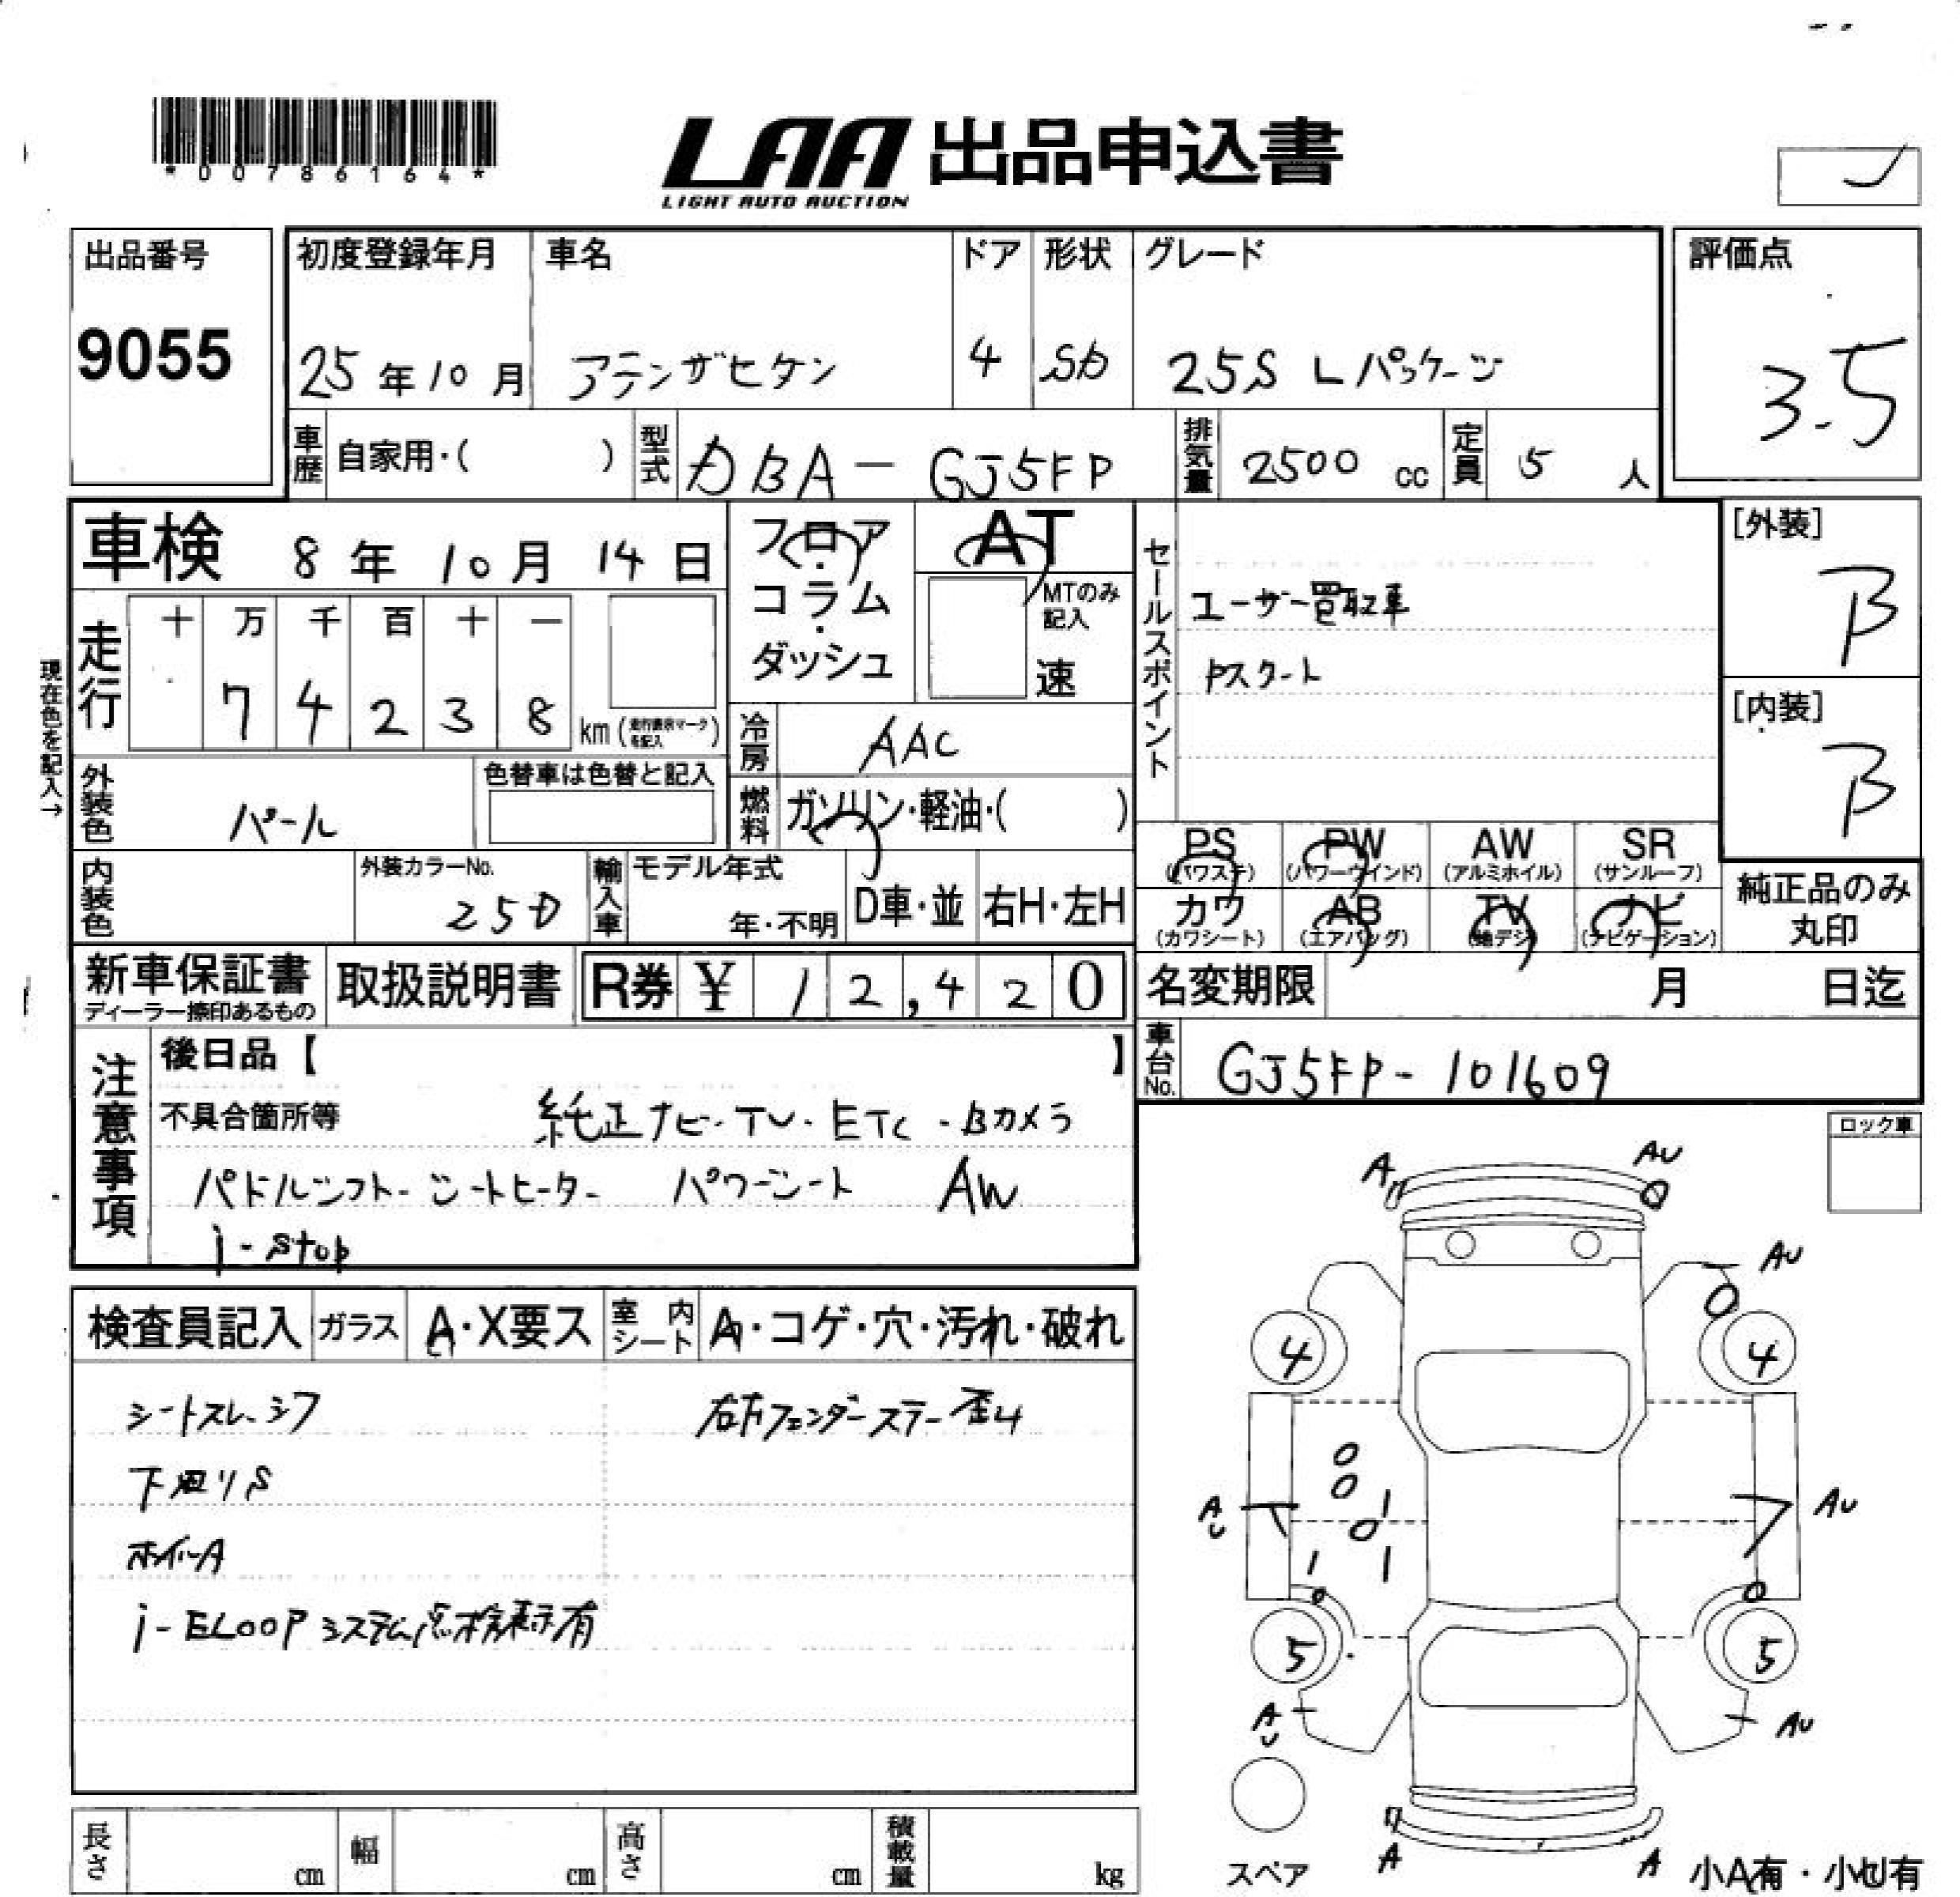 *00786164*
LAA 出品申込書
LIGHT AUTO AUCTION
出品番号
9055
初度登録年月
25年10月
車名
アテンザセダン
ドア
4
形状
SD
グレード
25S Lパッケージ
評価点
3.5
車歴 自家用・( )
型式 DBA-GJ5FP
排気量 2500 cc
定員 5 人
車検 8年10月14日
フロア・コラム・ダッシュ
AT
MTのみ記入
速
セールスポイント
ユーザー買取車
Pスタート
[外装]
B
[内装]
B
現在色を記入→
走行
十 万 千 百 十 一
7 4 2 3 8
km (走行表示マークを記入)
冷房 AAC
外装色 パール
色替車は色替と記入
燃料 ガソリン・軽油・( )
内装色
外装カラーNo.
25D
輸入車
モデル年式
年・不明
D車・並
右H・左H
PS (パワステ)
PW (パワーウインド)
AW (アルミホイル)
SR (サンルーフ)
カワ (カワシート)
AB (エアバッグ)
TV (地デジ)
ナビ (ナビゲーション)
純正品のみ丸印
新車保証書
ディーラー捺印あるもの
取扱説明書
R券 ¥ 12,420
名変期限 月 日迄
車台No. GJ5FP-101609
注意事項
後日品【 】
不具合箇所等
純正ナビ・TV・ETC・Bカメラ
パドルシフト・シートヒーター パワーシート AW
i-stop
ロック車
検査員記入
ガラス A・X要ス
室内シート A・コゲ・穴・汚れ・破れ
シートスレ、シワ
下廻りS
ホイルA
i-ELOOPシステム点検表示有
右左フェンダーステー歪み
A
AU
AU
4
4
AU
AU
5
5
AU
AU
A
A
スペア
小A有・小U有
長さ cm
幅 cm
高さ cm
積載量 kg